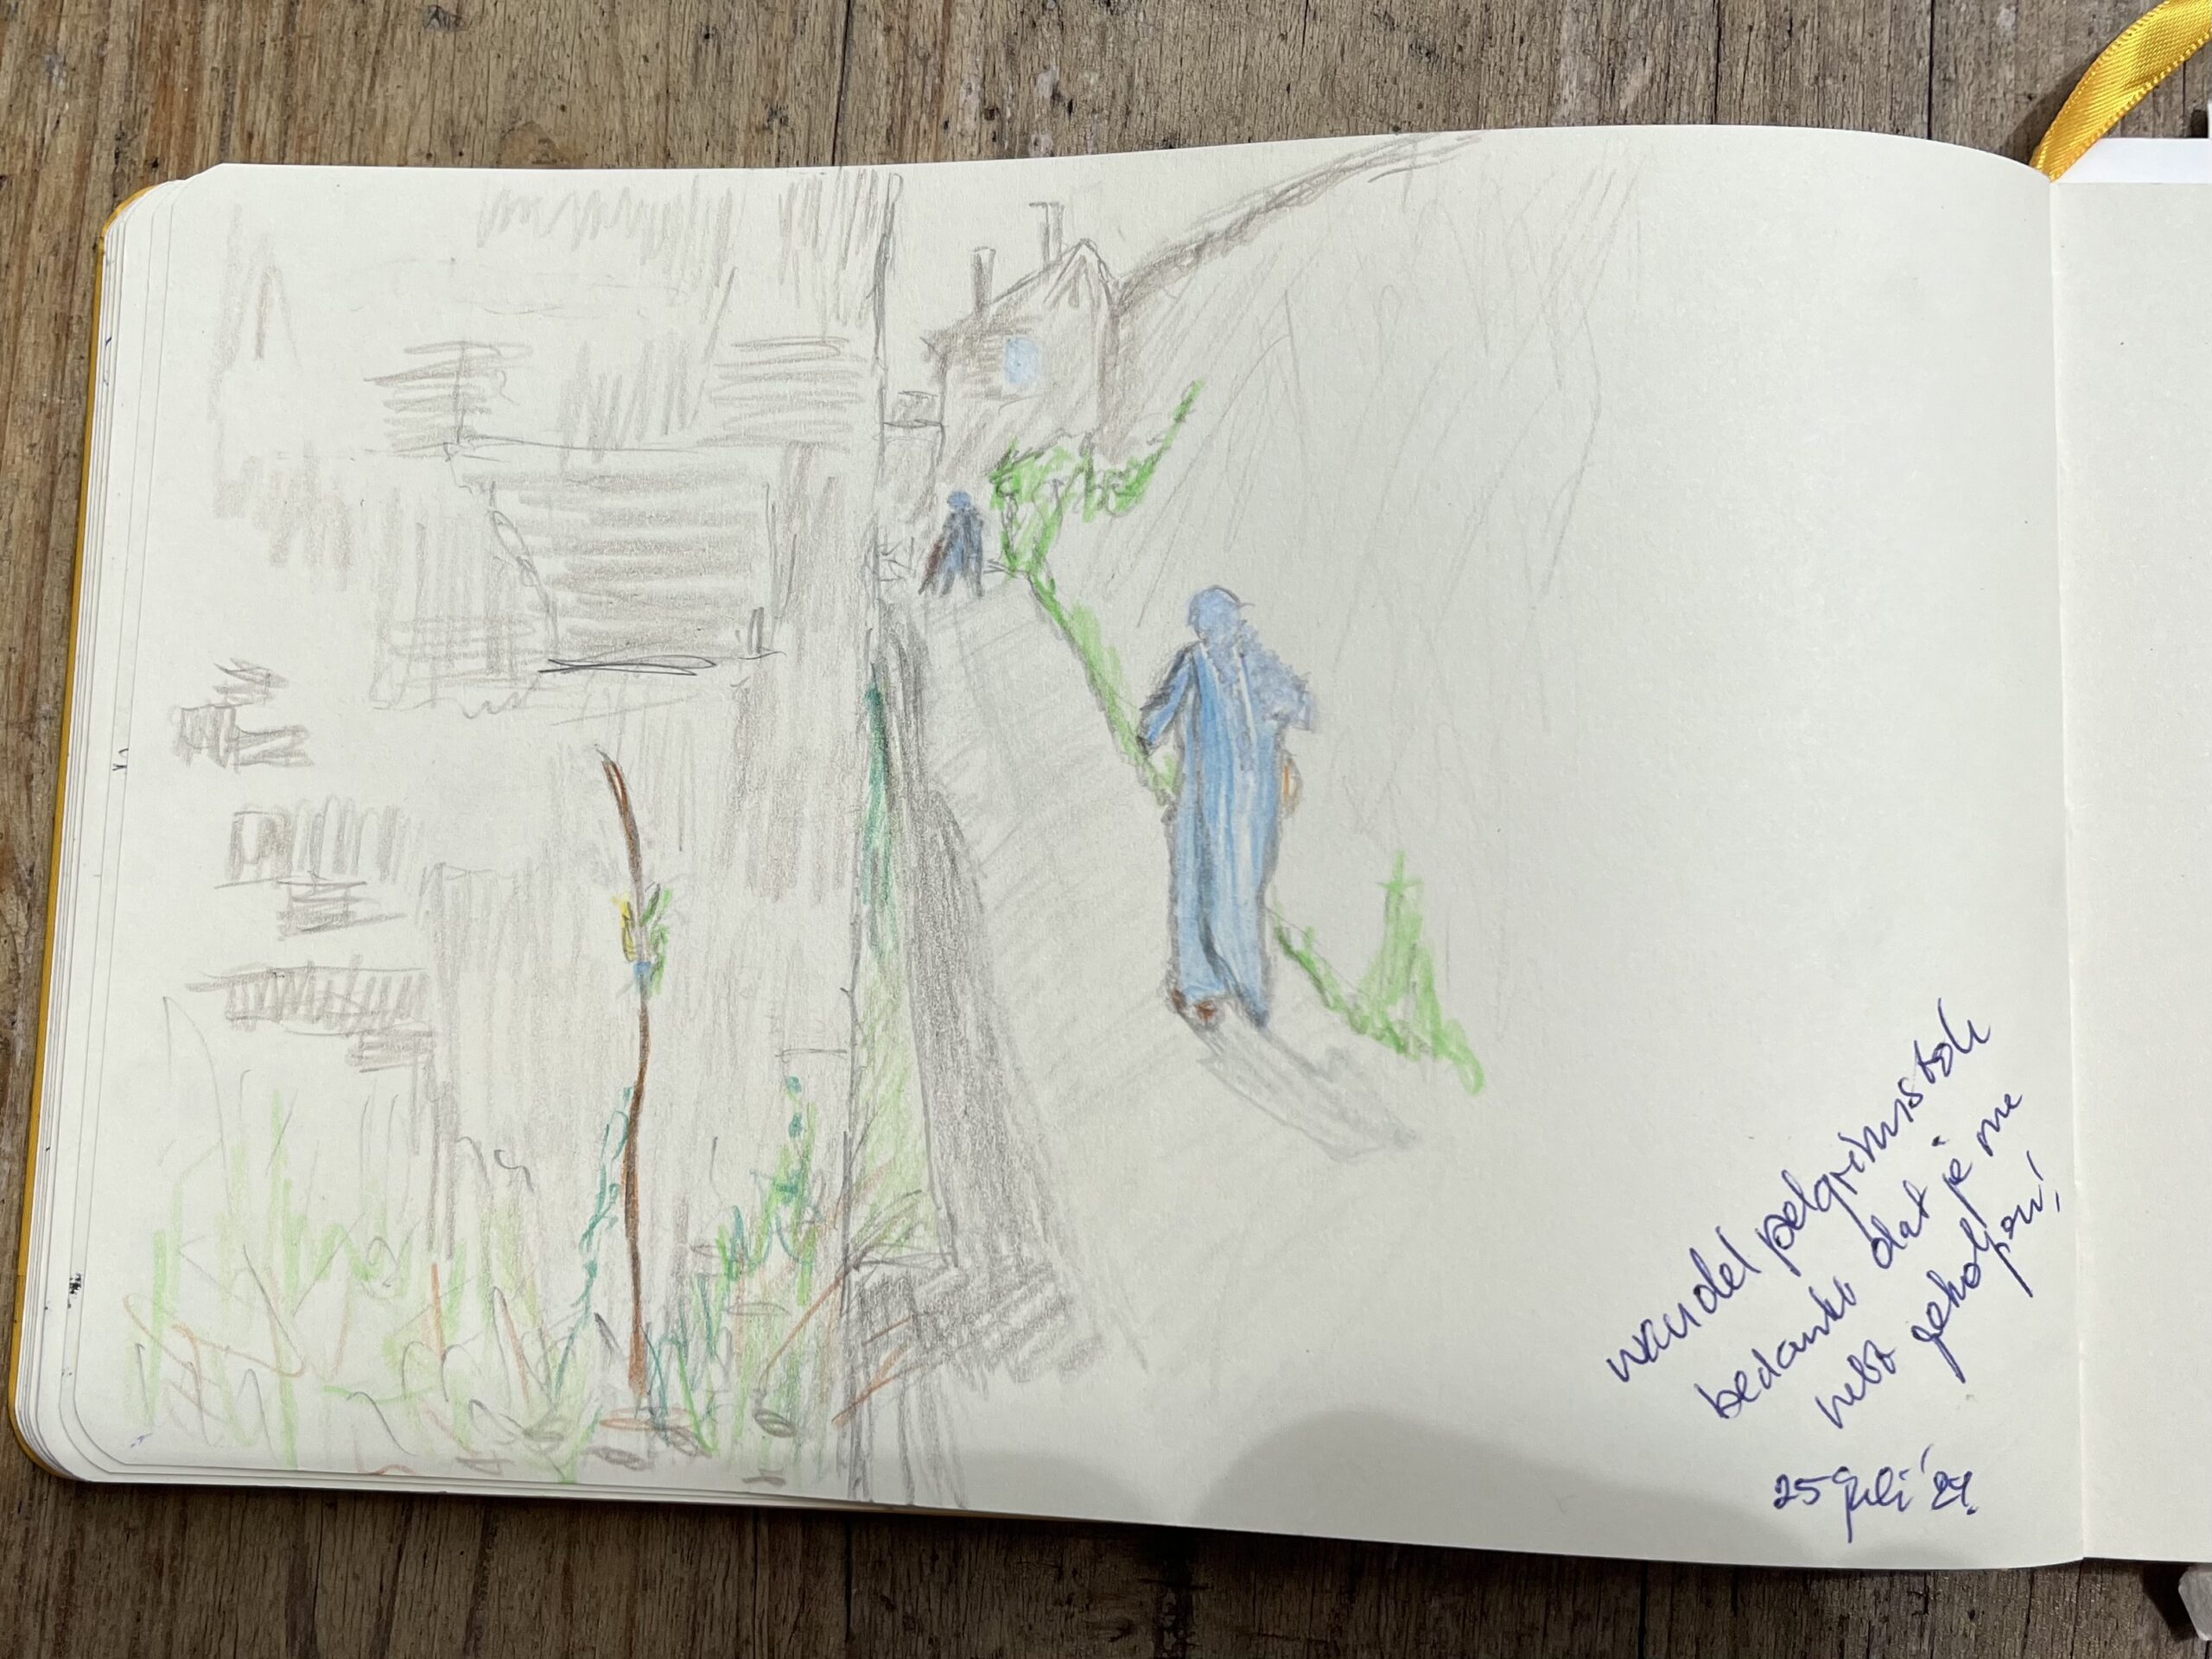 wandel pelgrimstok
bedankt dat je me
hebt geholpen!
25 juli '24.